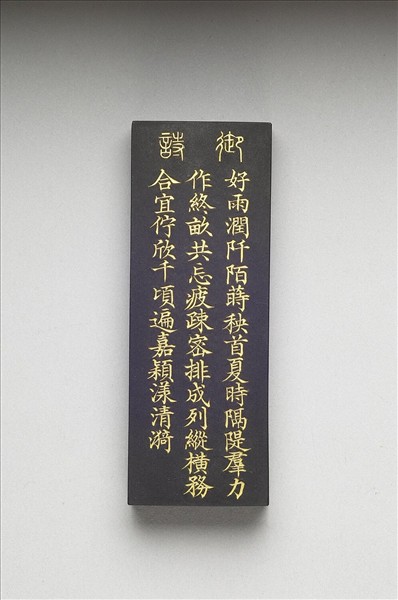 御詩
好雨潤阡陌蒔秧首夏時隅隄羣力
作終畝共忘疲疎密排成列縱橫務
合宜佇欣千頃遍嘉穎漾清漪